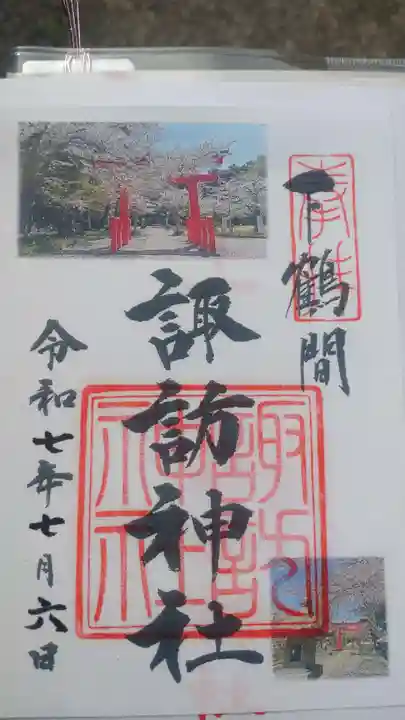 奉拝
下鶴間
諏訪神社
諏訪神社
令和七年七月六日